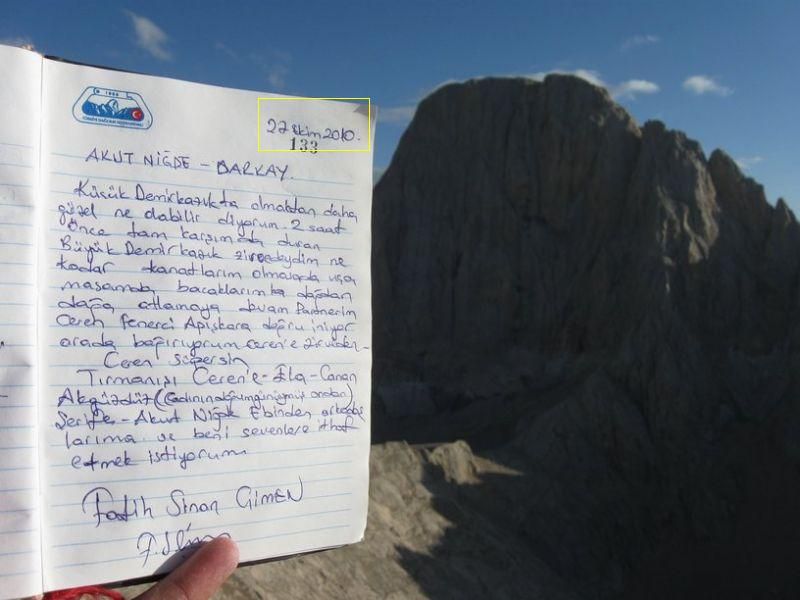 22 Ekim 2010.
133
AKUT NİĞDE - BARKAY.
Küçük Demirkazıkta olmaktan daha
güzel ne olabilir diyorum. 2 saat
önce tam karşımda duran
Büyük Demirkazık zirvedeydim ne
kadar kanatlarım olmasada uça
masamda bacaklarımla dağdan
dağa atlamaya Partnerim
Ceren Fenerci Apışkara doğru iniyor
arada bağırıyorum Ceren'e zirveden-
Ceren süpersin
Tırmanışı Ceren'e - Ela - Canan
Akgündüz
Şerife - Akut Niğde Ekibinden arkadaş
larıma ve beni sevenlere ithaf
etmek istiyorum
Fatih Sinan ÇİMEN